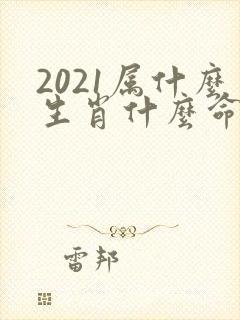 2021属什麽
生肖什麽命
雷邦